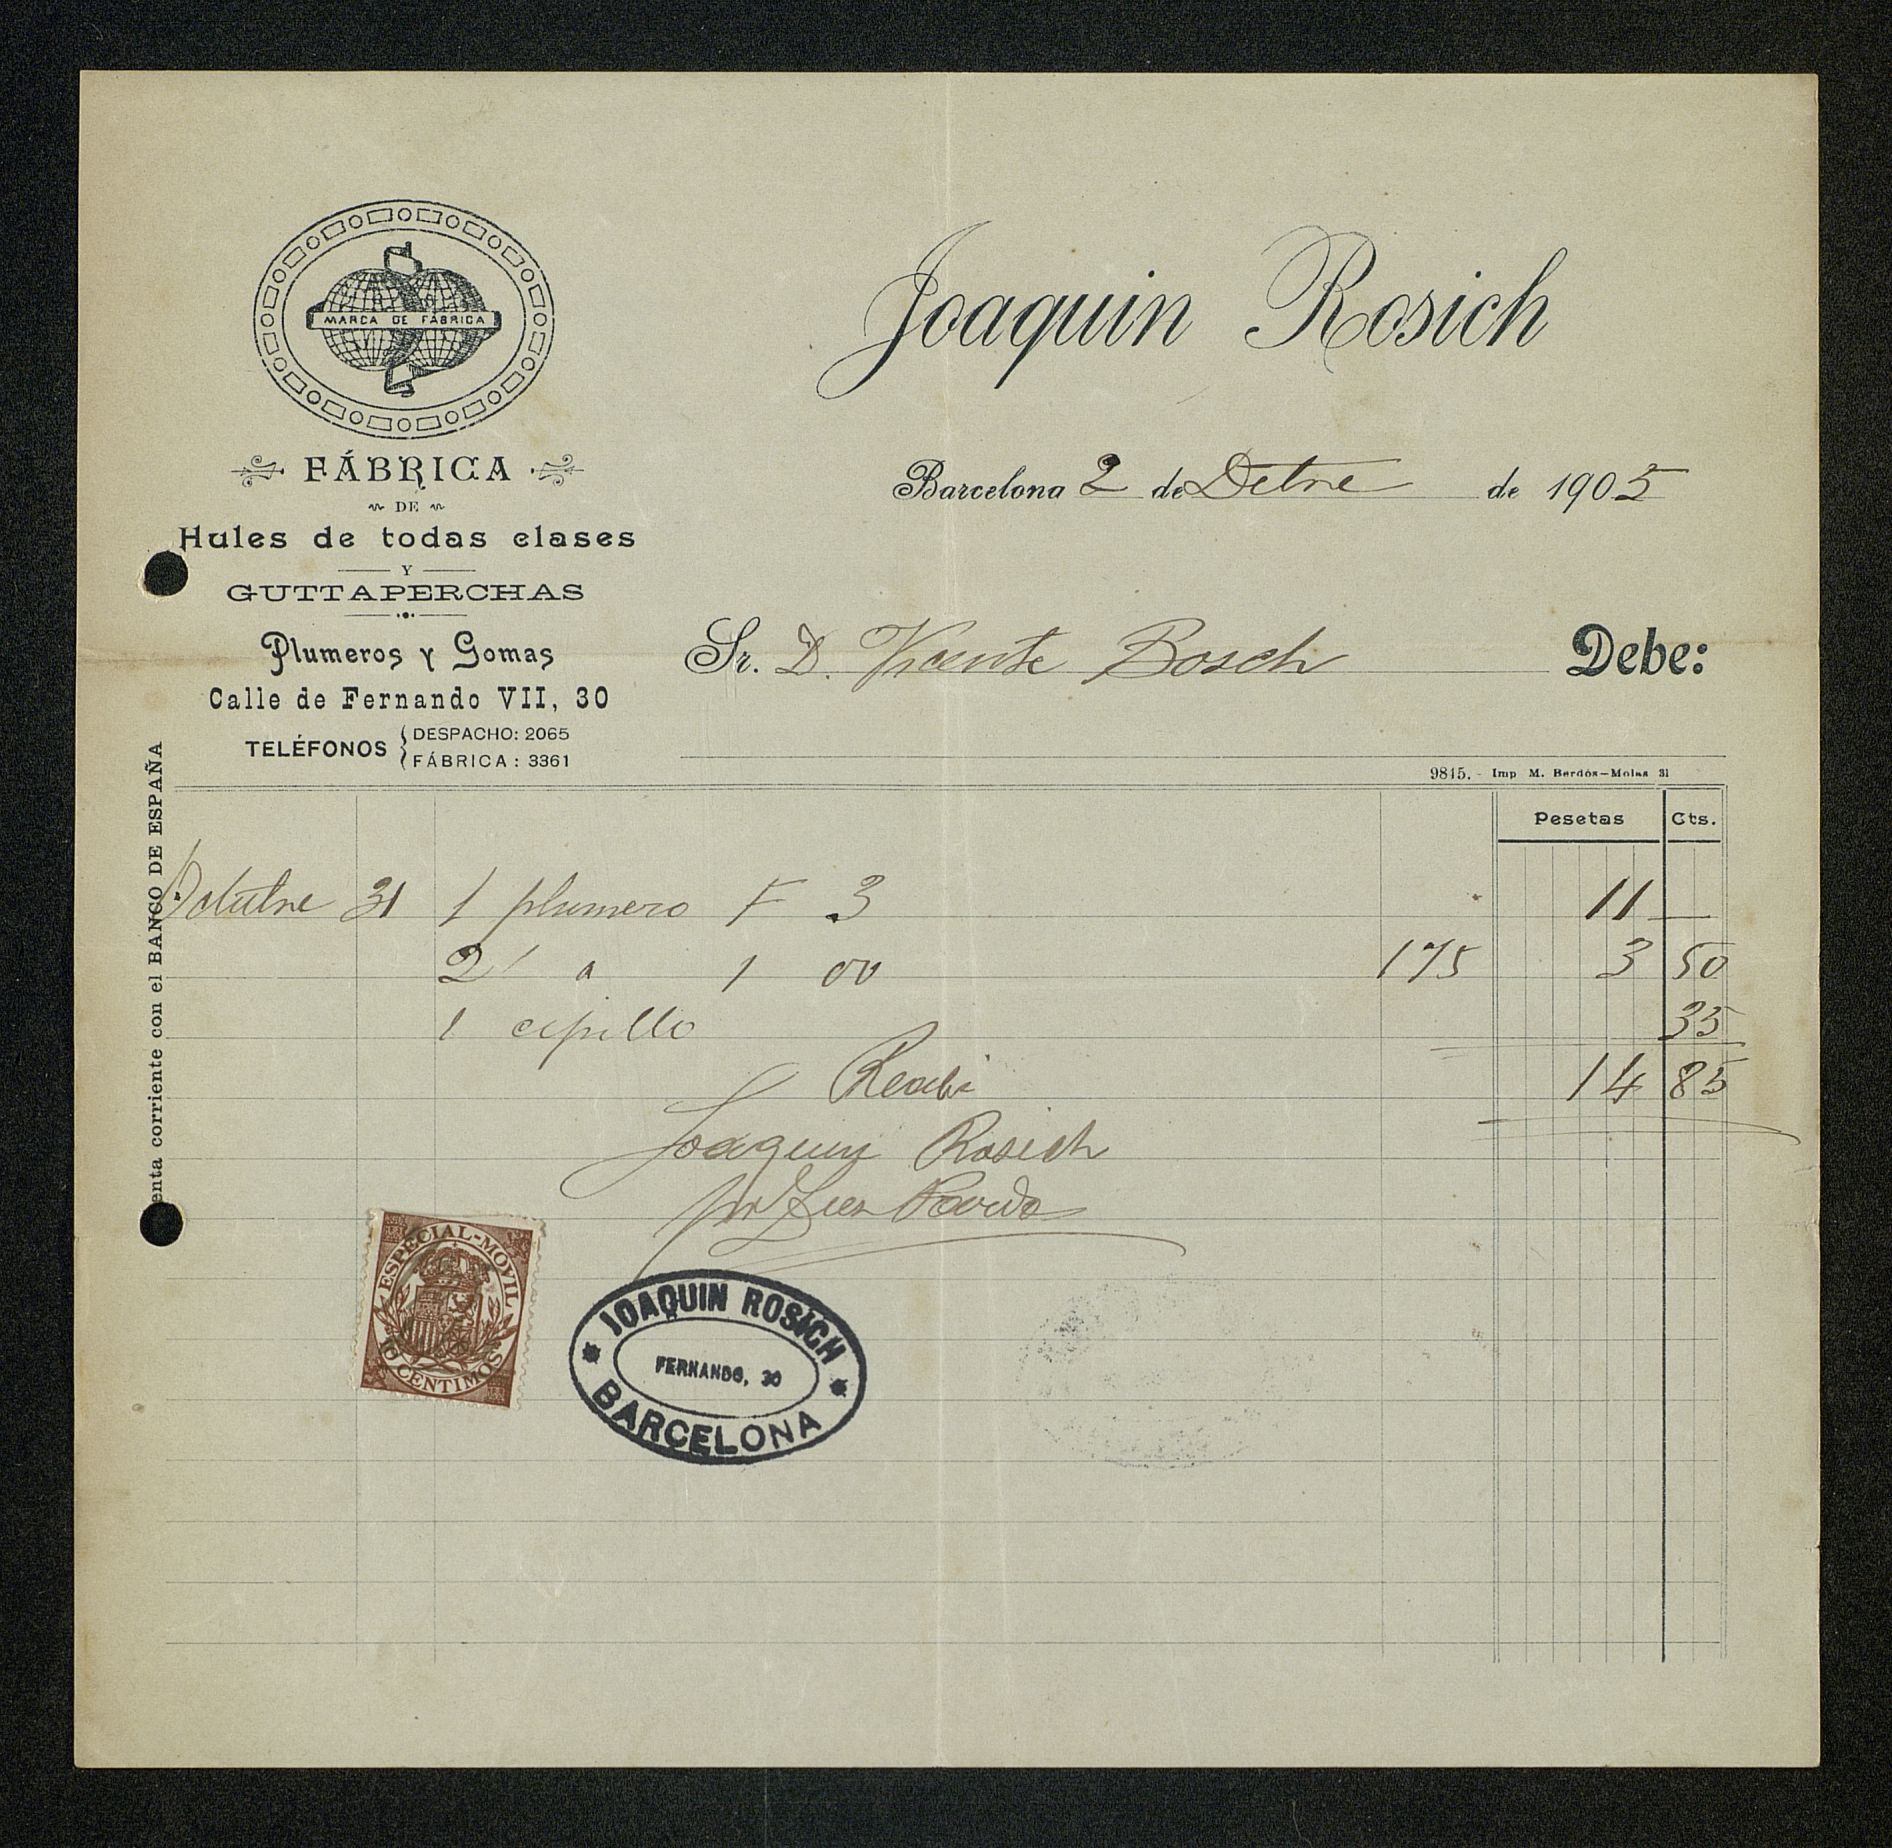 MARCA DE FÁBRICA
FÁBRICA
DE
Hules de todas clases
Y
GUTTAPERCHAS
Plumeros y Gomas
Calle de Fernando VII, 30
TELÉFONOS { DESPACHO: 2065
FÁBRICA: 3361
Joaquin Rosich
Barcelona 2 de Dcbre de 1905
Sr. D. Vicente Bosch Debe:
9815. - Imp M. Berdós-Molas 31
enta corriente con el BANCO DE ESPAÑA
Pesetas Cts.
Octubre 31 1 plumero F 3 11 —
2 1 00 175 3 50
1 cepillo 35
14 85
Recibi
Joaquin Rosich
ESPECIAL-MOVIL
10 CENTIMOS
JOAQUIN ROSICH
FERNANDO, 30
BARCELONA